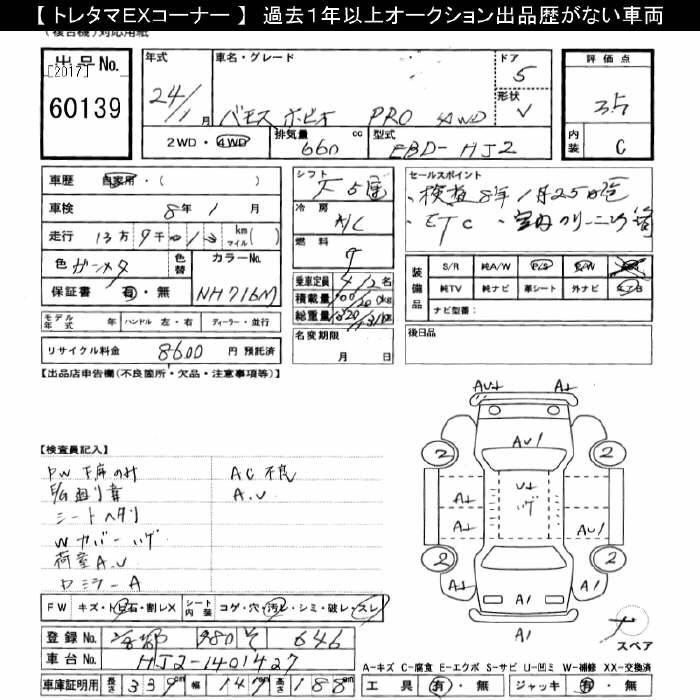 【 トレタマEXコーナー 】 過去１年以上オークション出品歴がない車両
出品No.
[2017]
60139
年式
24/1月
車名・グレード
バモス ホビオ PRO 4WD
ドア
5
形状
V
評価点
3.5
内装
C
2WD・4WD
排気量
660 cc
型式
EBD-HJ2
車歴 自家用・( )
車検 8年 1月
走行
km
マイル( )
色 ガンメタ
色替
カラーNo. NH716M
保証書 有・無
モデル年式 年 ハンドル 左・右 ディーラー・並行
リサイクル料金 8600 円 預託済
シフト
F5速
冷房
A/C
燃料
乗車定員 4/2名
積載量
kg
総重量
名変期限
月 日
セールスポイント
・検査8年1月25日迄
・ETC ・室内クリーニング
装備品
S/R 純A/W P/S P/W
純TV 純ナビ 革シート 外ナビ
ナビ型番:
後日品
【出品店申告欄(不良箇所・欠品・注意事項等)】
【検査員記入】
AC不良
A.U
シートヘタリ
荷室A.U
FW キズ・トビ石・割レX シート内装 コゲ・穴・汚レ・シミ・破レ・スレ
登録No. 京都 480 そ 646
車台No. HJ2-1401427
車庫証明用 長さ 339cm 幅 147cm 高さ 188cm
AU+
A+
AU1
2
2
A+
U+
ハゲ
A+
AU1
2
2
A+
A1
A1
A1
スペア
A-キズ C-腐食 E-エクボ S-サビ U-凹ミ W-補修 XX-交換済
工具 有・無 ジャッキ 有・無